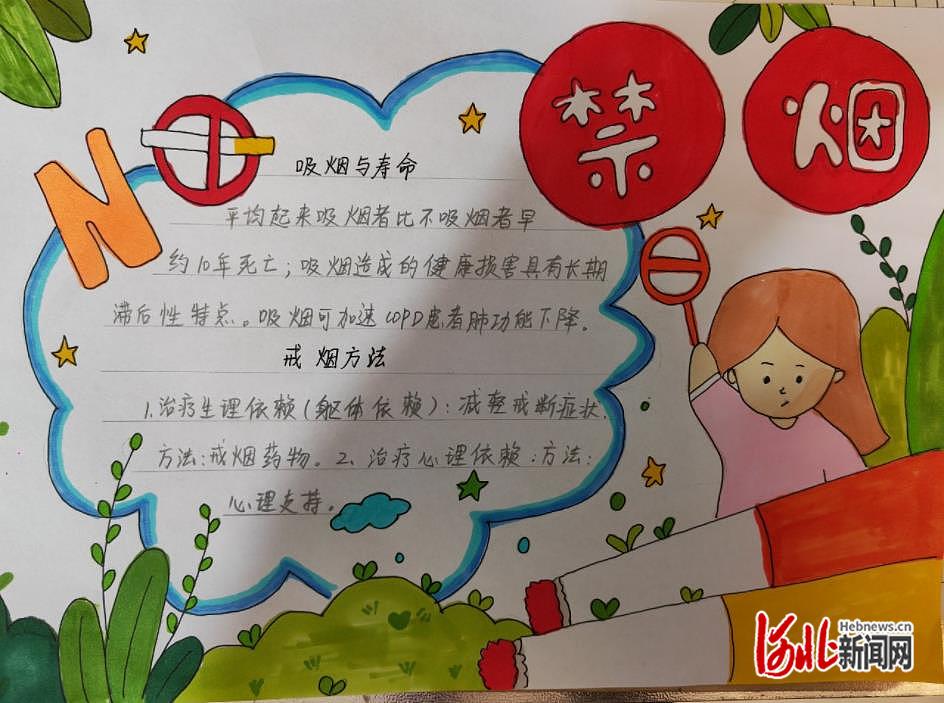 禁烟
NO
吸烟与寿命
平均起来吸烟者比不吸烟者早
约10年死亡；吸烟造成的健康损害具有长期
滞后性特点。吸烟可加速COPD患者肺功能下降。
戒烟方法
1.治疗生理依赖(躯体依赖)：减轻戒断症状.
方法:戒烟药物。2、治疗心理依赖:方法:
心理支持。
河北新闻网
Hebnews.cn